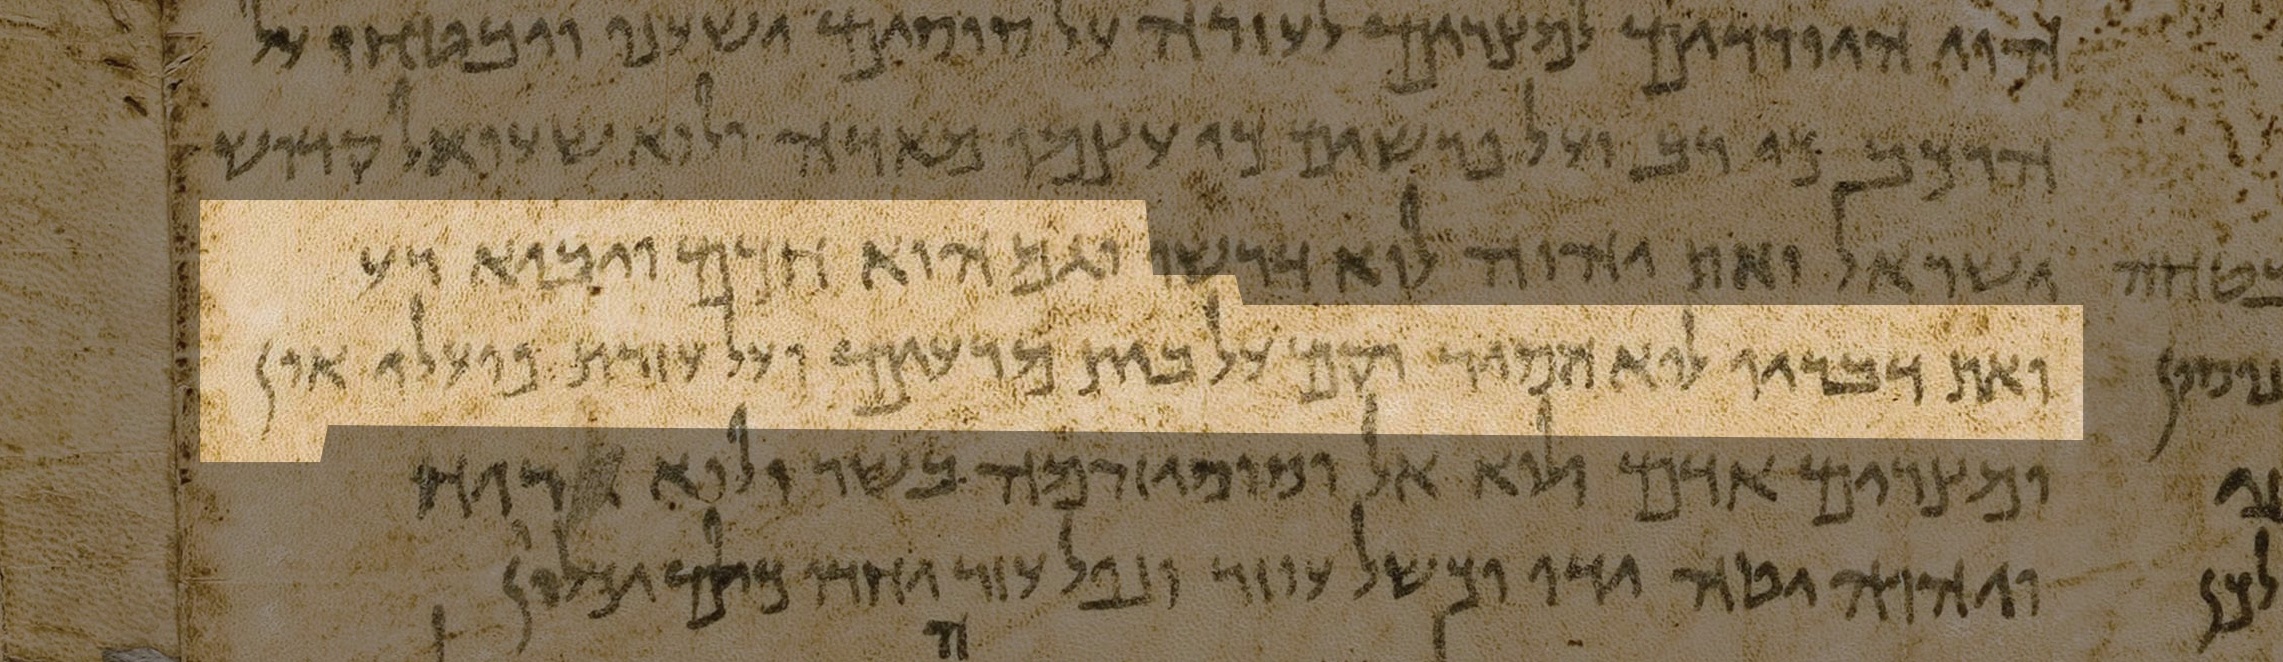 הוי היורדים למצרים לעזרה על סוסים ישענו ויבטחו על
הרכב כי רב ועל פרשים כי עצמו מאדה ולוא שעו אל קדוש
ישראל ואת יהוה לוא דרשו וגם הוא חכם ויביא רע
ואת דבריו לוא הסיר וקם על בית מרעים ועל עזרת פועלי און
ומצרים אדם ולוא אל וסוסיהמה בשר ולוא רוח
ויהוה יטה ידו וכשל עוזר ונפל עזור יחדו כולם יכליון